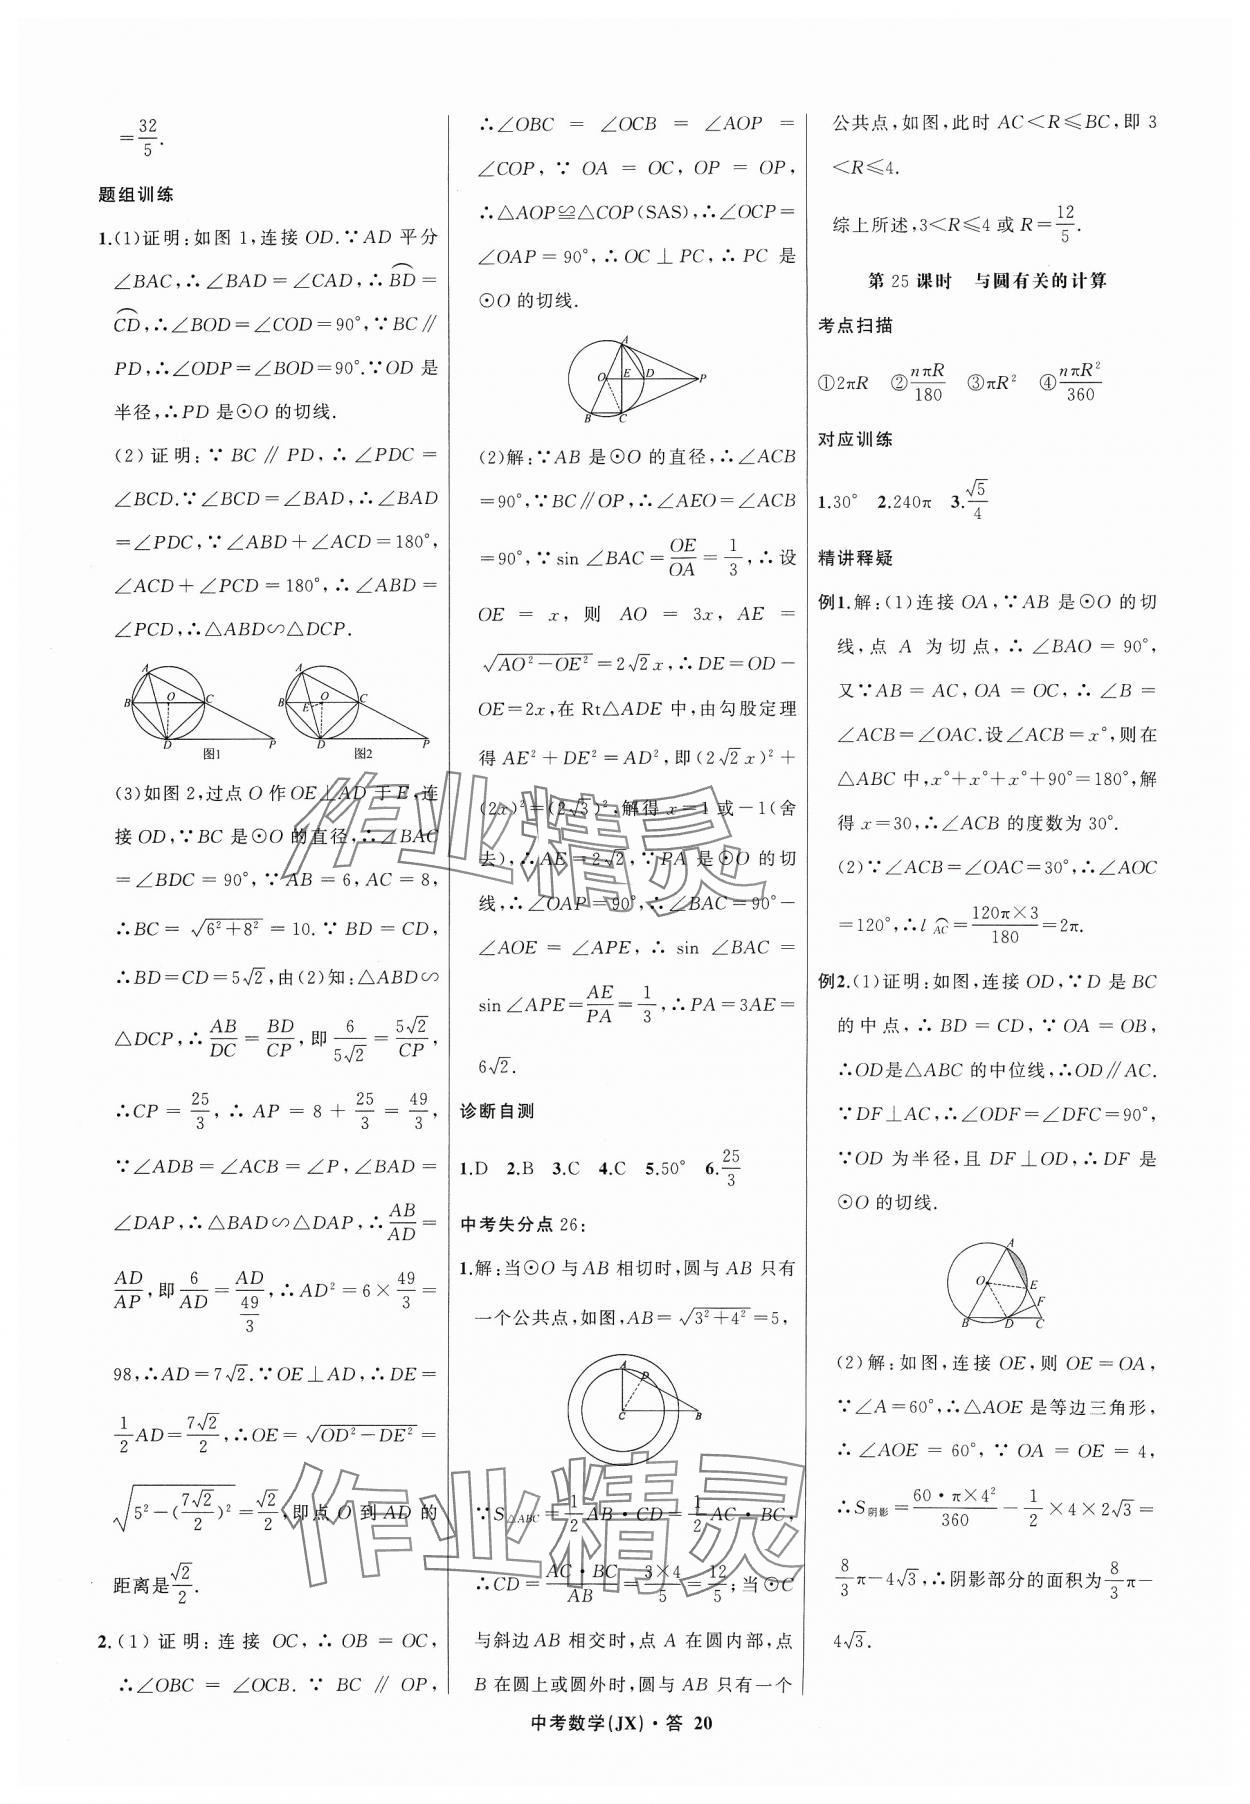 =32/5.
题组训练
1.(1)证明:如图1,连接OD.∵AD平分
∠BAC,∴∠BAD=∠CAD,∴⌒BD=
⌒CD,∴∠BOD=∠COD=90°,∵BC∥
PD,∴∠ODP=∠BOD=90°.∵OD是
半径,∴PD是⊙O的切线.
(2)证明:∵BC∥PD,∴∠PDC=
∠BCD.∵∠BCD=∠BAD,∴∠BAD
=∠PDC,∵∠ABD+∠ACD=180°,
∠ACD+∠PCD=180°,∴∠ABD=
∠PCD,∴△ABD∽△DCP.
A B O C D P 图1
A B O C E D P 图2
(3)如图2,过点O作OE⊥AD于E,连
接OD,∵BC是⊙O的直径,∴∠BAC
=∠BDC=90°,∵AB=6,AC=8,
∴BC=√(6²+8²)=10.∵BD=CD,
∴BD=CD=5√2,由(2)知:△ABD∽
△DCP,∴AB/DC=BD/CP,即6/(5√2)=5√2/CP,
∴CP=25/3,∴AP=8+25/3=49/3,
∵∠ADB=∠ACB=∠P,∠BAD=
∠DAP,∴△BAD∽△DAP,∴AB/AD=
AD/AP,即6/AD=AD/(49/3),∴AD²=6×49/3=
98,∴AD=7√2.∵OE⊥AD,∴DE=
1/2AD=7√2/2,∴OE=√(OD²-DE²)=
√(5²-(7√2/2)²)=√2/2,即点O到AD的
距离是√2/2.
2.(1)证明:连接OC,∴OB=OC,
∴∠OBC=∠OCB.∵BC∥OP,
∴∠OBC=∠OCB=∠AOP=
∠COP,∵OA=OC,OP=OP,
∴△AOP≌△COP(SAS),∴∠OCP=
∠OAP=90°,∴OC⊥PC,∴PC是
⊙O的切线.
A O E D P B C
(2)解:∵AB是⊙O的直径,∴∠ACB
=90°,∵BC∥OP,∴∠AEO=∠ACB
=90°,∵sin∠BAC=OE/OA=1/3,∴设
OE=x,则AO=3x,AE=
√(AO²-OE²)=2√2x,∴DE=OD-
OE=2x,在Rt△ADE中,由勾股定理
得AE²+DE²=AD²,即(2√2x)²+
(2x)²=(2√3)²,解得x=1或-1(舍
去),∴AE=2√2,∵PA是⊙O的切
线,∴∠OAP=90°,∴∠BAC=90°-
∠AOE=∠APE,∴sin∠BAC=
sin∠APE=AE/PA=1/3,∴PA=3AE=
6√2.
诊断自测
1.D 2.B 3.C 4.C 5.50° 6.25/3
中考失分点26:
1.解:当⊙O与AB相切时,圆与AB只有
一个公共点,如图,AB=√(3²+4²)=5,
A D C B
∵S△ABC=1/2AB·CD=1/2AC·BC,
∴CD=AC·BC/AB=3×4/5=12/5;当⊙C
与斜边AB相交时,点A在圆内部,点
B在圆上或圆外时,圆与AB只有一个
公共点,如图,此时AC<R≤BC,即3
<R≤4.
综上所述,3<R≤4或R=12/5.
第25课时 与圆有关的计算
考点扫描
①2πR ②nπR/180 ③πR² ④nπR²/360
对应训练
1.30° 2.240π 3.√5/4
精讲释疑
例1.解:(1)连接OA,∵AB是⊙O的切
线,点A为切点,∴∠BAO=90°,
又∵AB=AC,OA=OC,∴∠B=
∠ACB=∠OAC.设∠ACB=x°,则在
△ABC中,x°+x°+x°+90°=180°,解
得x=30,∴∠ACB的度数为30°.
(2)∵∠ACB=∠OAC=30°,∴∠AOC
=120°,∴l⌒AC=120π×3/180=2π.
例2.(1)证明:如图,连接OD,∵D是BC
的中点,∴BD=CD,∵OA=OB,
∴OD是△ABC的中位线,∴OD∥AC.
∵DF⊥AC,∴∠ODF=∠DFC=90°,
∵OD为半径,且DF⊥OD,∴DF是
⊙O的切线.
A O E F B D C
(2)解:如图,连接OE,则OE=OA,
∵∠A=60°,∴△AOE是等边三角形,
∴∠AOE=60°,∵OA=OE=4,
∴S阴影=60·π×4²/360-1/2×4×2√3=
8/3π-4√3,∴阴影部分的面积为8/3π-
4√3.
中考数学(JX)·答 20
作业精灵
作业精灵